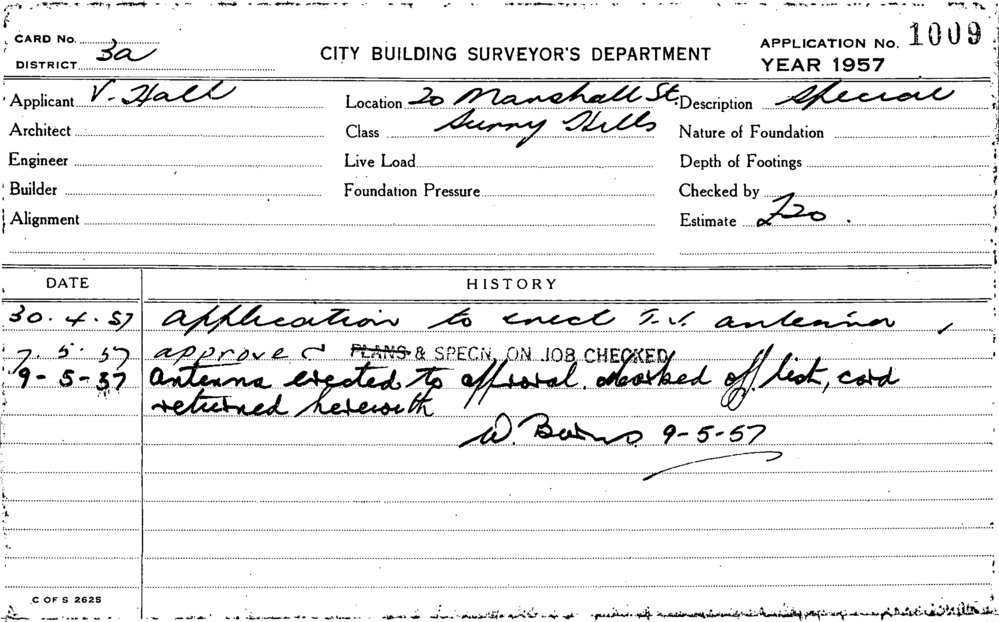 CARD No.
DISTRICT 3a
CITY BUILDING SURVEYOR'S DEPARTMENT
APPLICATION No. 1009
YEAR 1957
Applicant V. Hall
Location 20 Marshall St.
Description Special
Architect
Class Surry Hills
Nature of Foundation
Engineer
Live Load
Depth of Footings
Builder
Foundation Pressure
Checked by
Alignment
Estimate £20.
DATE HISTORY
30.4.57 Application to erect T.V. antenna,
7.5.57 approved PLANS & SPECN. ON JOB CHECKED
9-5-57 Antenna erected to approval. Marked off list, card
returned herewith
W. Burns 9-5-57
C OF S 2625